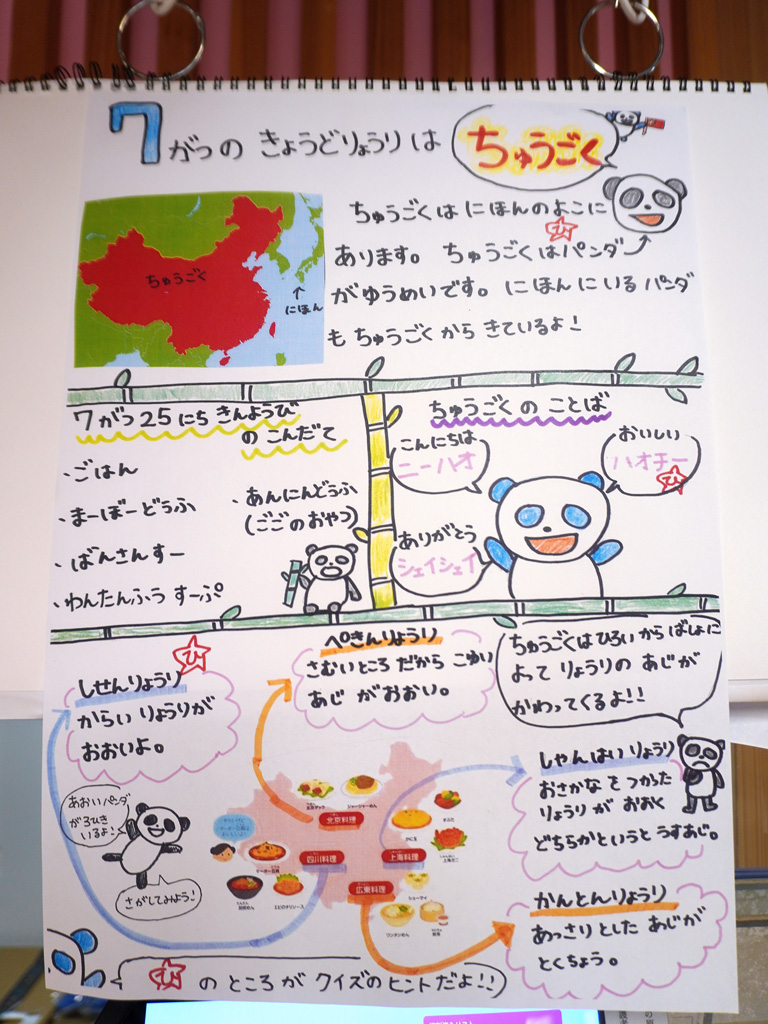 7がつの きょうどりょうりは ちゅうごく
ちゅうごくは にほんのよこに
あります。 ちゅうごくは パンダ
ひ
がゆうめいです。 にほんにいる パンダ
も ちゅうごくから きているよ!
ちゅうごく
にほん
7がつ25にち きんようび
の こんだて
・ごはん
・まーぼーどうふ
・ばんさんすー
・わんたんふう すーぷ
・あんにんどうふ
(ごごのおやつ)
ちゅうごくの ことば
こんにちは
ニーハオ
おいしい
ハオチー
ひ
ありがとう
シェイシェイ
ひ
しせんりょうり
からい りょうりが
おおいよ。
ぺきんりょうり
さむいところ だから こゆい
あじ がおおい。
ちゅうごくは ひろいから ばしょに
よって りょうりの あじが
かわってくるよ!!
しゃんはいりょうり
おさかなを つかった
りょうりが おおく
どちらかというと うすあじ。
かんとんりょうり
あっさりとした あじが
とくちょう。
あおいパンダ
が3びき
いるよ!
さがしてみよう!
北京料理
ジャージャーめん
四川料理
マーボー豆腐
エビのチリソース
上海料理
かに玉
すぶた
広東料理
シューマイ
ワンタンめん
ひ のところが クイズのヒントだよ!!